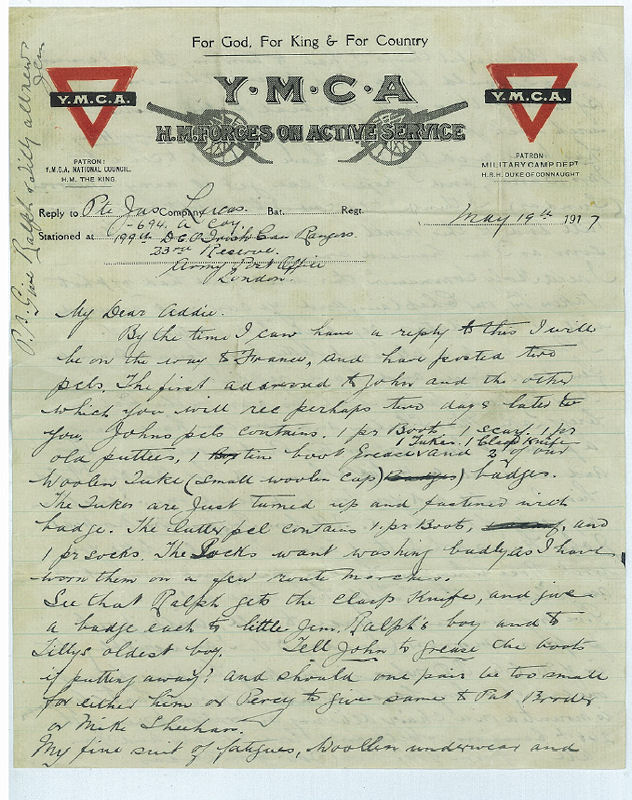 For God, For King & For Country
Y·M·C·A
H.M. FORCES ON ACTIVE SERVICE
Y.M.C.A.
PATRON:
Y.M.C.A. NATIONAL COUNCIL.
H.M. THE KING.
Y.M.C.A.
PATRON:
MILITARY CAMP DEPT
H.R.H. DUKE OF CONNAUGHT
P.S. Give Ralph & Lilly all news.
Jim
Reply to Pte Jas Company Lucas. Bat. Regt.
-694. A Coy.
Stationed at 199th D C O Irish Can Rangers
23rd Reserve.
Army Post Office
London.
May 19th 1917
My Dear Addie.
By the time I can have a reply to this I will
be on the way to France, and have posted two
pcls. The first addressed to John and the other
which you will rec perhaps two days later to
you, Johns pcls contains. 1 pr Boots, 1 scarf. 1 pr
old puttees, 1 tin boot Grease and 1 Tuke. 1 Clasp Knife 2 of our
Woolen Tuke (small woolen cap) Badges) badges.
The Tukes are just turned up and fastened with
badge. The latter pcl contains 1. pr Boot, and
1 pr socks. The Socks want washing badly as I have
worn them on a few route marches.
See that Ralph gets the Clasp Knife, and give
a badge each to little Jim. Ralph's boy and to
Lillys oldest boy. Tell John to grease the boots
if putting away? and should one pair be too small
for either him or Percy to give same to Pat
or Mike Sheehan.
My fine suit of fatigues, Woollen underwear and